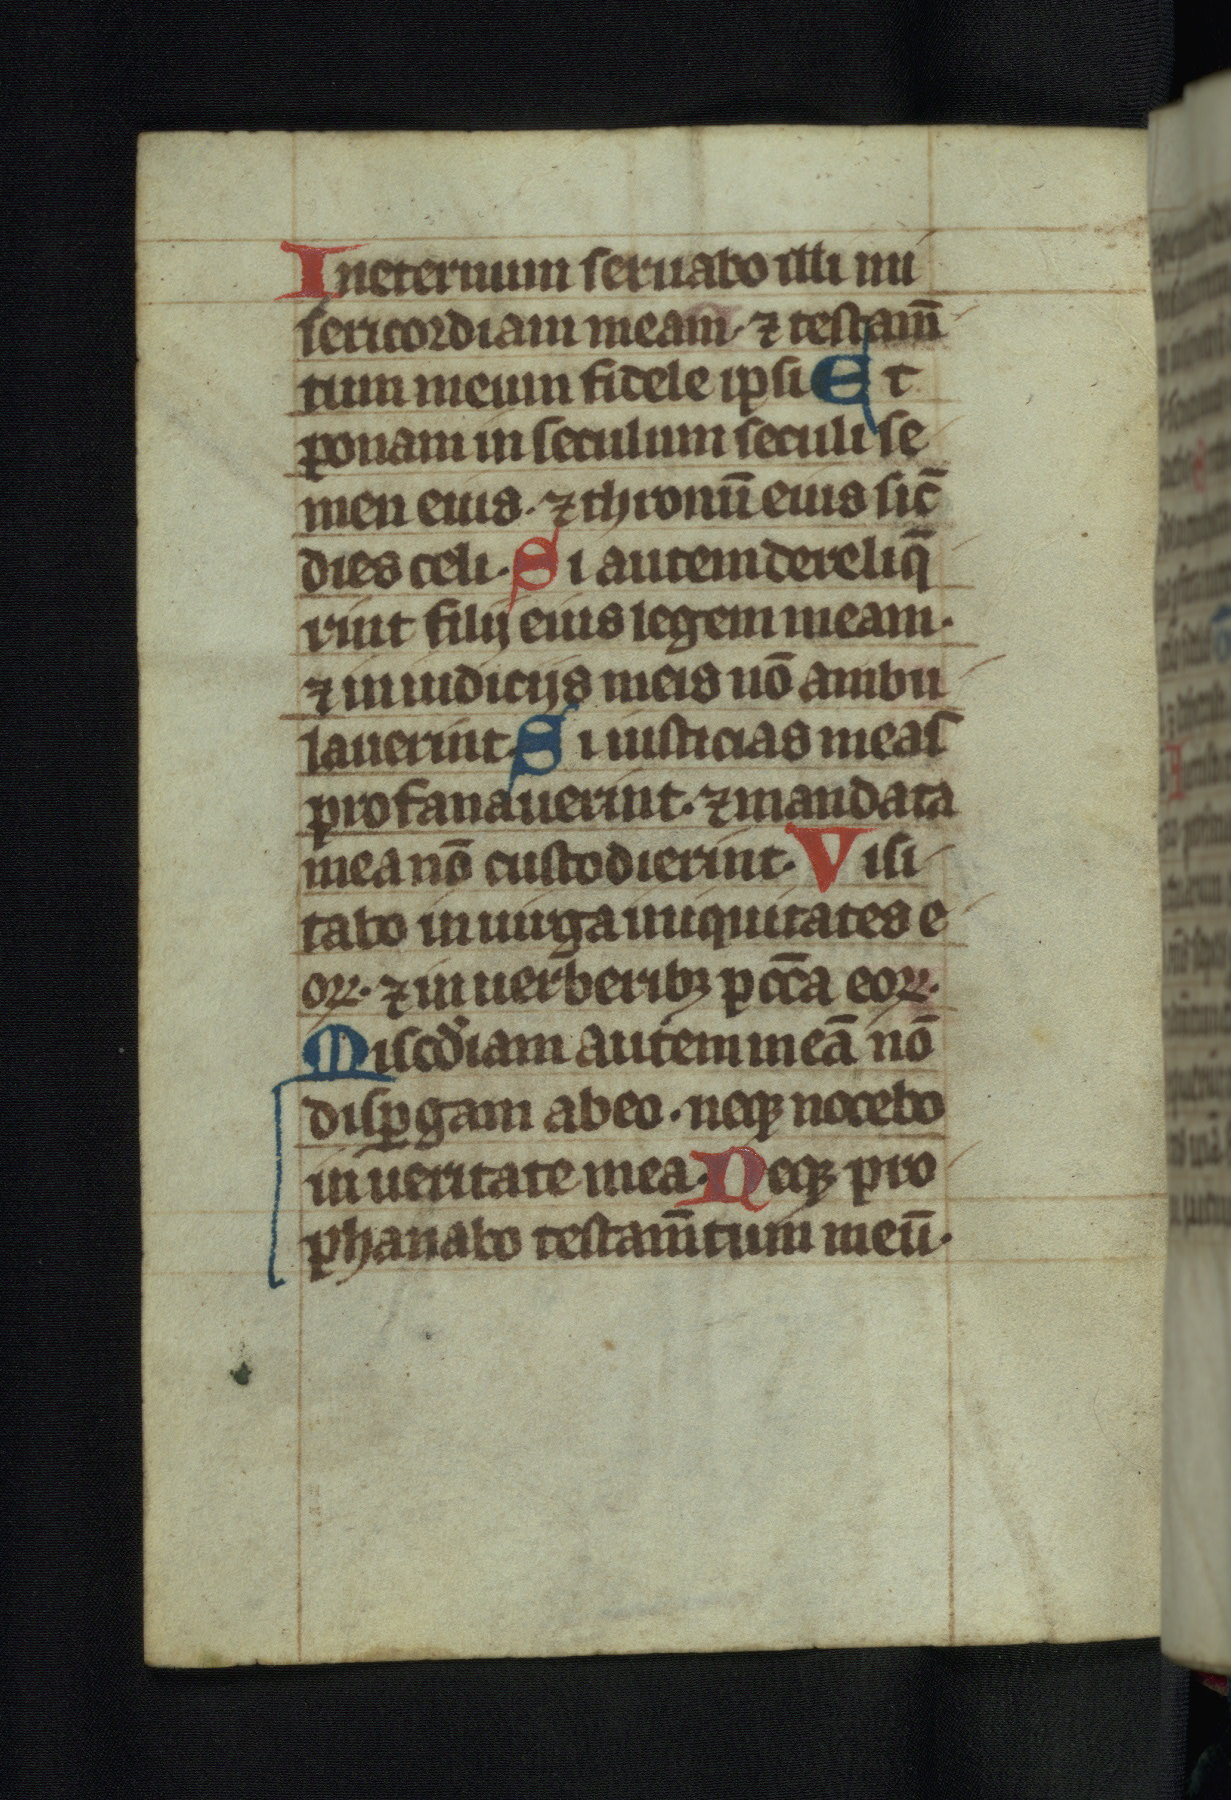 In eternum seruabo illi mi
sericordiam meam. ⁊ testam̄
tum meum fidele ipsi Et
ponam in seculum seculi se
men eius. ⁊ thronū eius sic̄
dies celi. Si autem dereliq̄
rint filij eius legem meam.
⁊ in iudicijs meis nō ambu
lauerint. Si iusticias meas
profanauerint. ⁊ mandata
mea nō custodierint. Visi
tabo in uirga iniquitates e
oꝝ. ⁊ in uerberibꝫ pcc̄a eoꝝ.
Misc̄diam autem meā nō
disꝑgam ab eo. neqꝫ nocebo
in ueritate mea. Neqꝫ pro
phanabo testam̄tum meū.